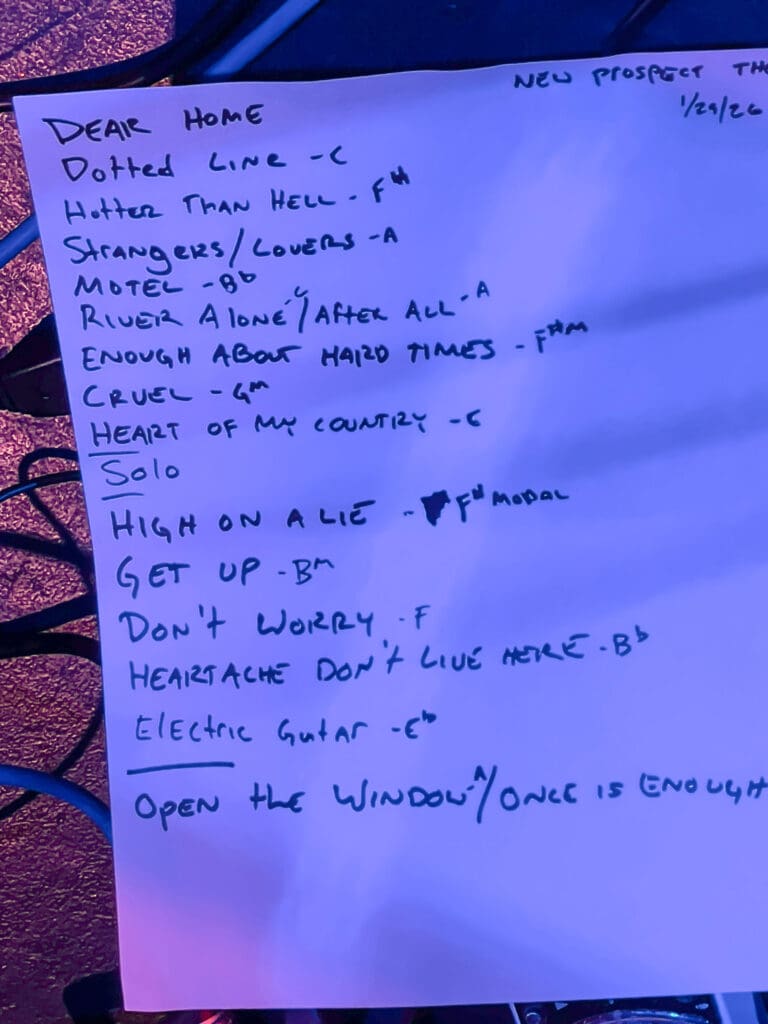 NEW PROSPECT TH
1/29/26
DEAR HOME
Dotted LINE - C
HOTTER THAN HELL - F#
STRANGERS/LOVERS - A
MOTEL - Bb
RIVER ALONE - C/AFTER ALL - A
ENOUGH ABOUT HARD TIMES - F#M
CRUEL - GM
HEART OF MY COUNTRY - C
Solo
HIGH ON A LIE - F# MODAL
GET UP - BM
DON'T WORRY - F
HEARTACHE DON'T LIVE HERE - Bb
ELECTRIC GUTAR - Eb
OPEN the WINDOW - A/ONCE IS ENOUGH